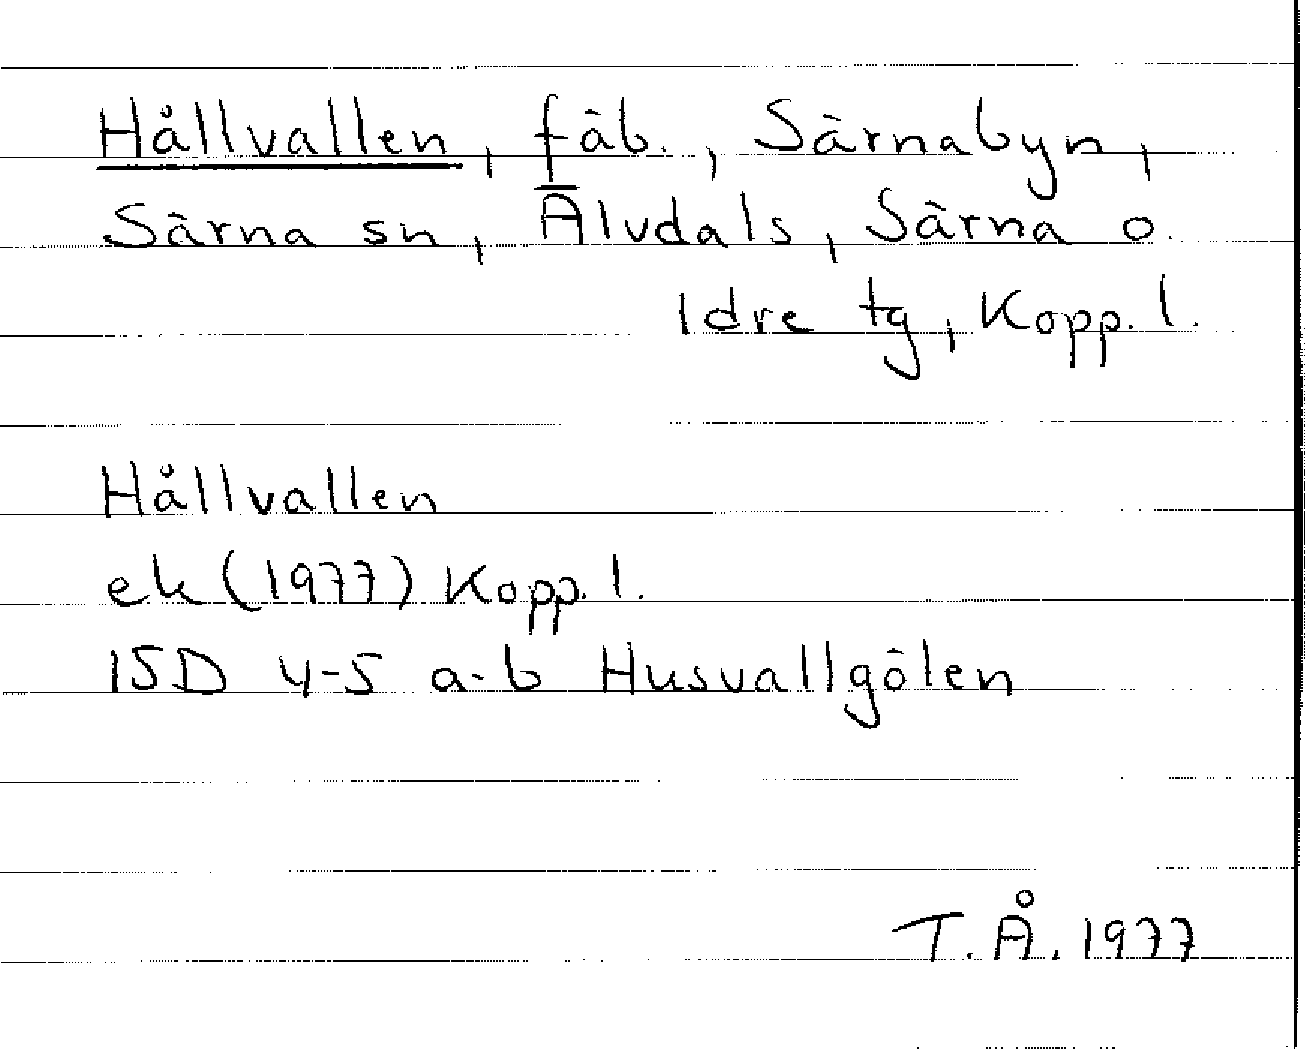 Hållvallen, fäb., Särnabyn,
Särna sn, Älvdals, Särna o.
Idre tg, Kopp. l.
Hållvallen
ek (1977) Kopp. l.
15D 4-5 a-b Husvallgölen
T. Å. 1977